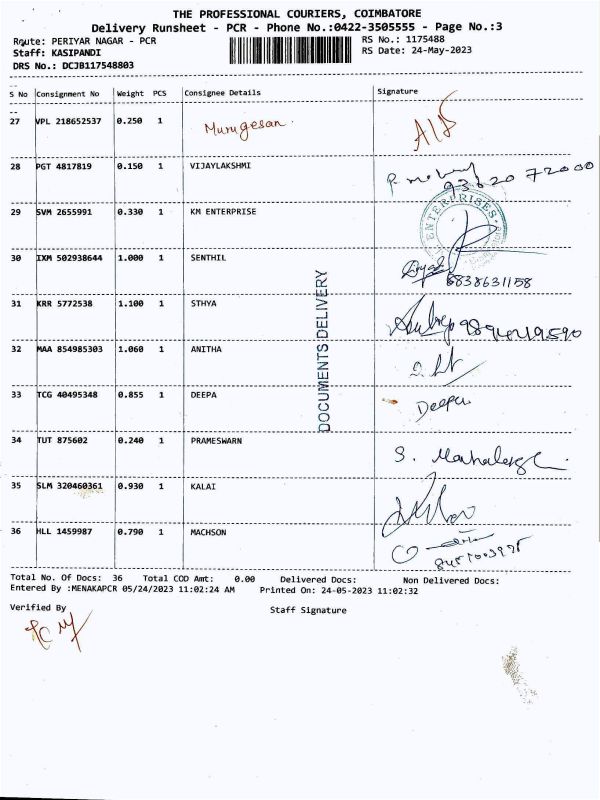 THE PROFESSIONAL COURIERS, COIMBATORE
Delivery Runsheet - PCR - Phone No.:0422-3505555 - Page No.:3
Route: PERIYAR NAGAR - PCR RS No.: 1175488
Staff: KASIPANDI RS Date: 24-May-2023
DRS No.: DCJB117548803
S No Consignment No Weight PCS Consignee Details Signature
27 VPL 218652537 0.250 1 Murugesan.
28 PGT 4817819 0.150 1 VIJAYLAKSHMI
29 SVM 2655991 0.330 1 KM ENTERPRISE ENTERPRISES
30 IXM 502938644 1.000 1 SENTHIL 6838631158
31 KRR 5772538 1.100 1 STHYA
32 MAA 854985303 1.060 1 ANITHA
33 TCG 40495348 0.855 1 DEEPA Deepa
34 TUT 875602 0.240 1 PRAMESWARN S.
35 SLM 320460361 0.930 1 KALAI
36 HLL 1459987 0.790 1 MACHSON
DOCUMENTS DELIVERY
Total No. Of Docs: 36 Total COD Amt: 0.00 Delivered Docs: Non Delivered Docs:
Entered By :MENAKAPCR 05/24/2023 11:02:24 AM Printed On: 24-05-2023 11:02:32
Verified By Staff Signature